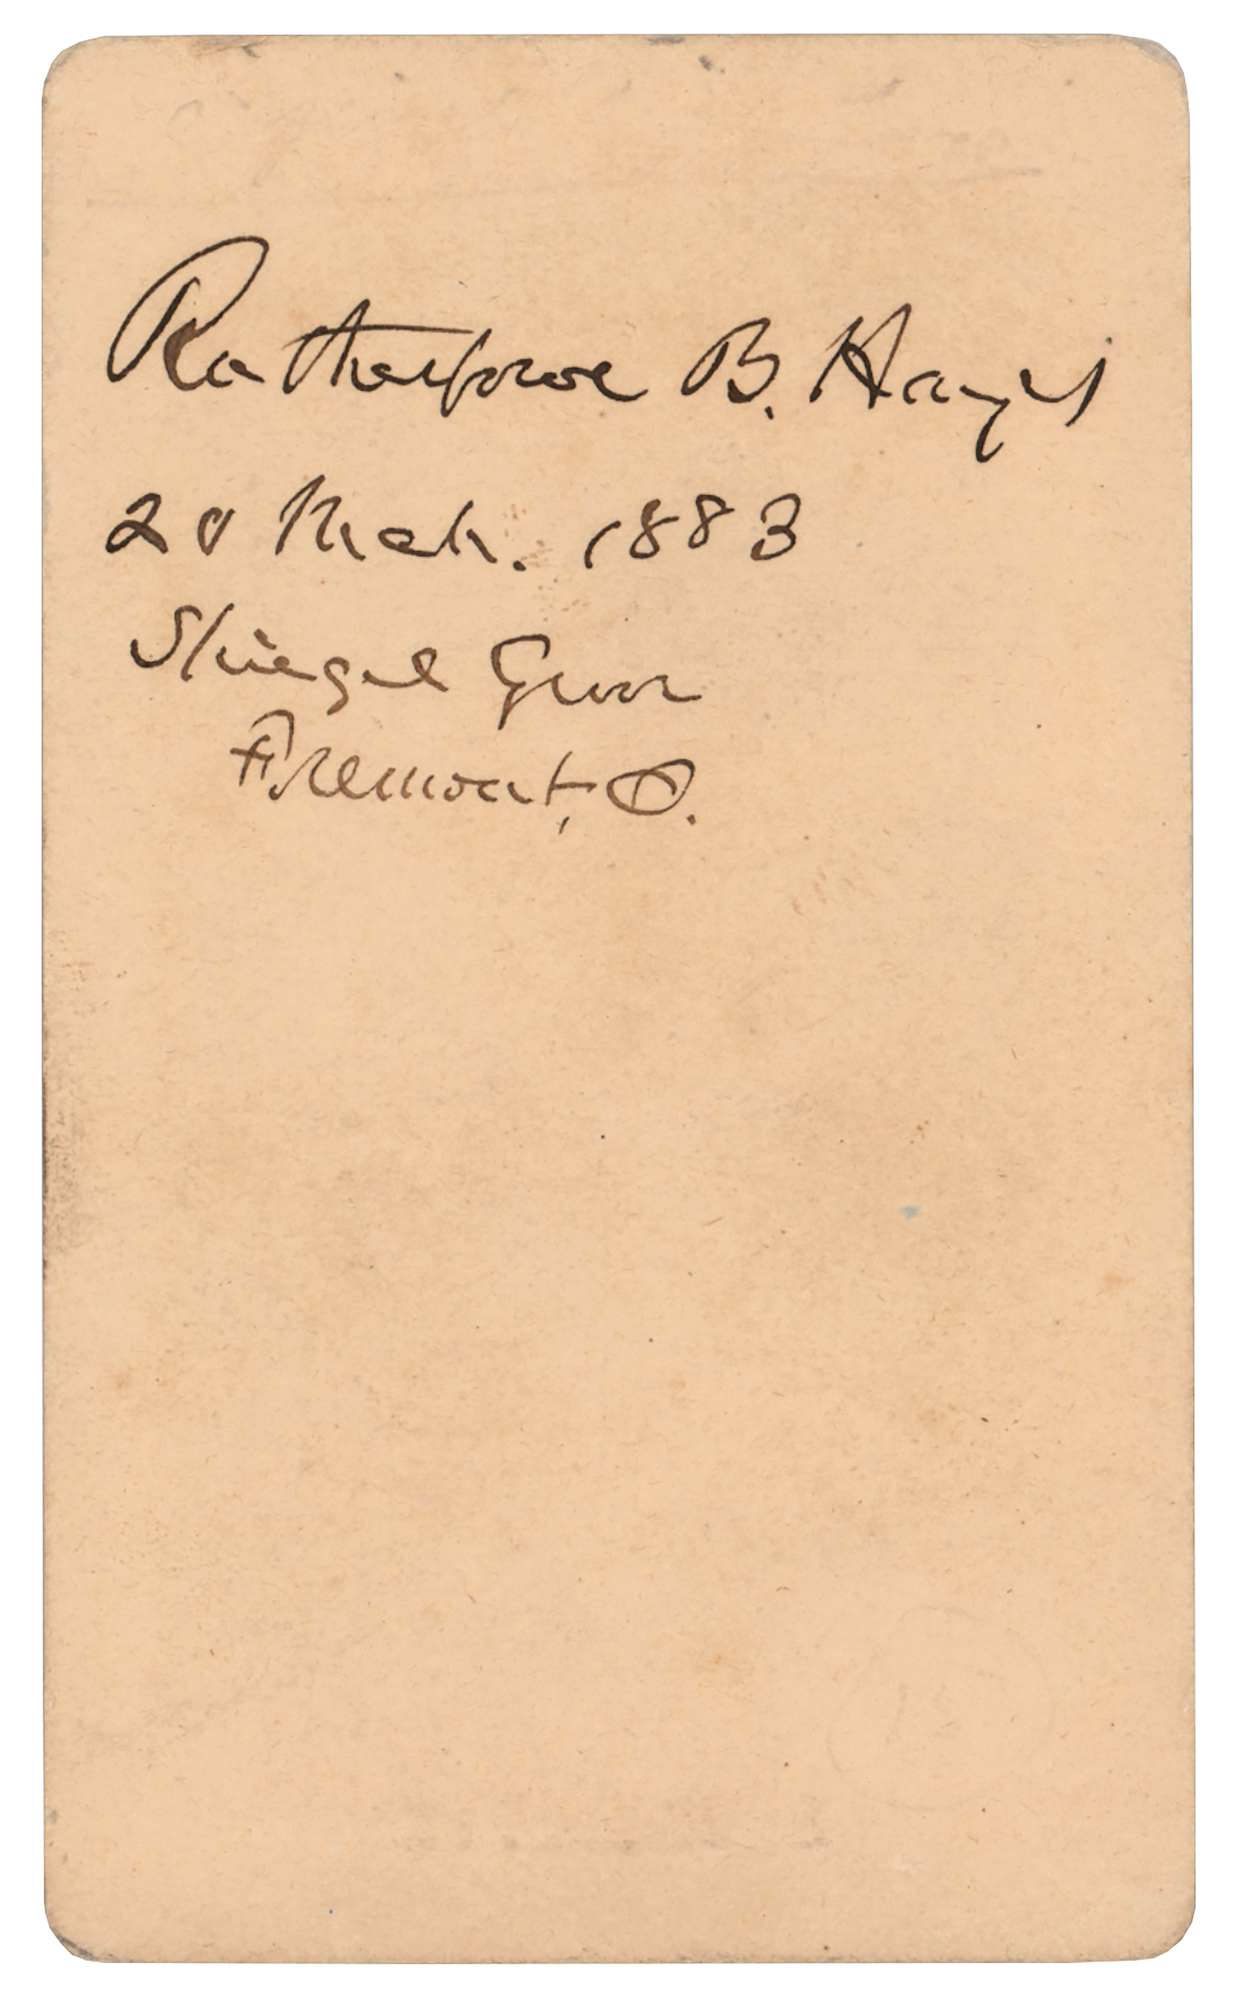 Rutherford B. Hayes
20 Mch. 1883
Spiegel Grove
Fremont, O.